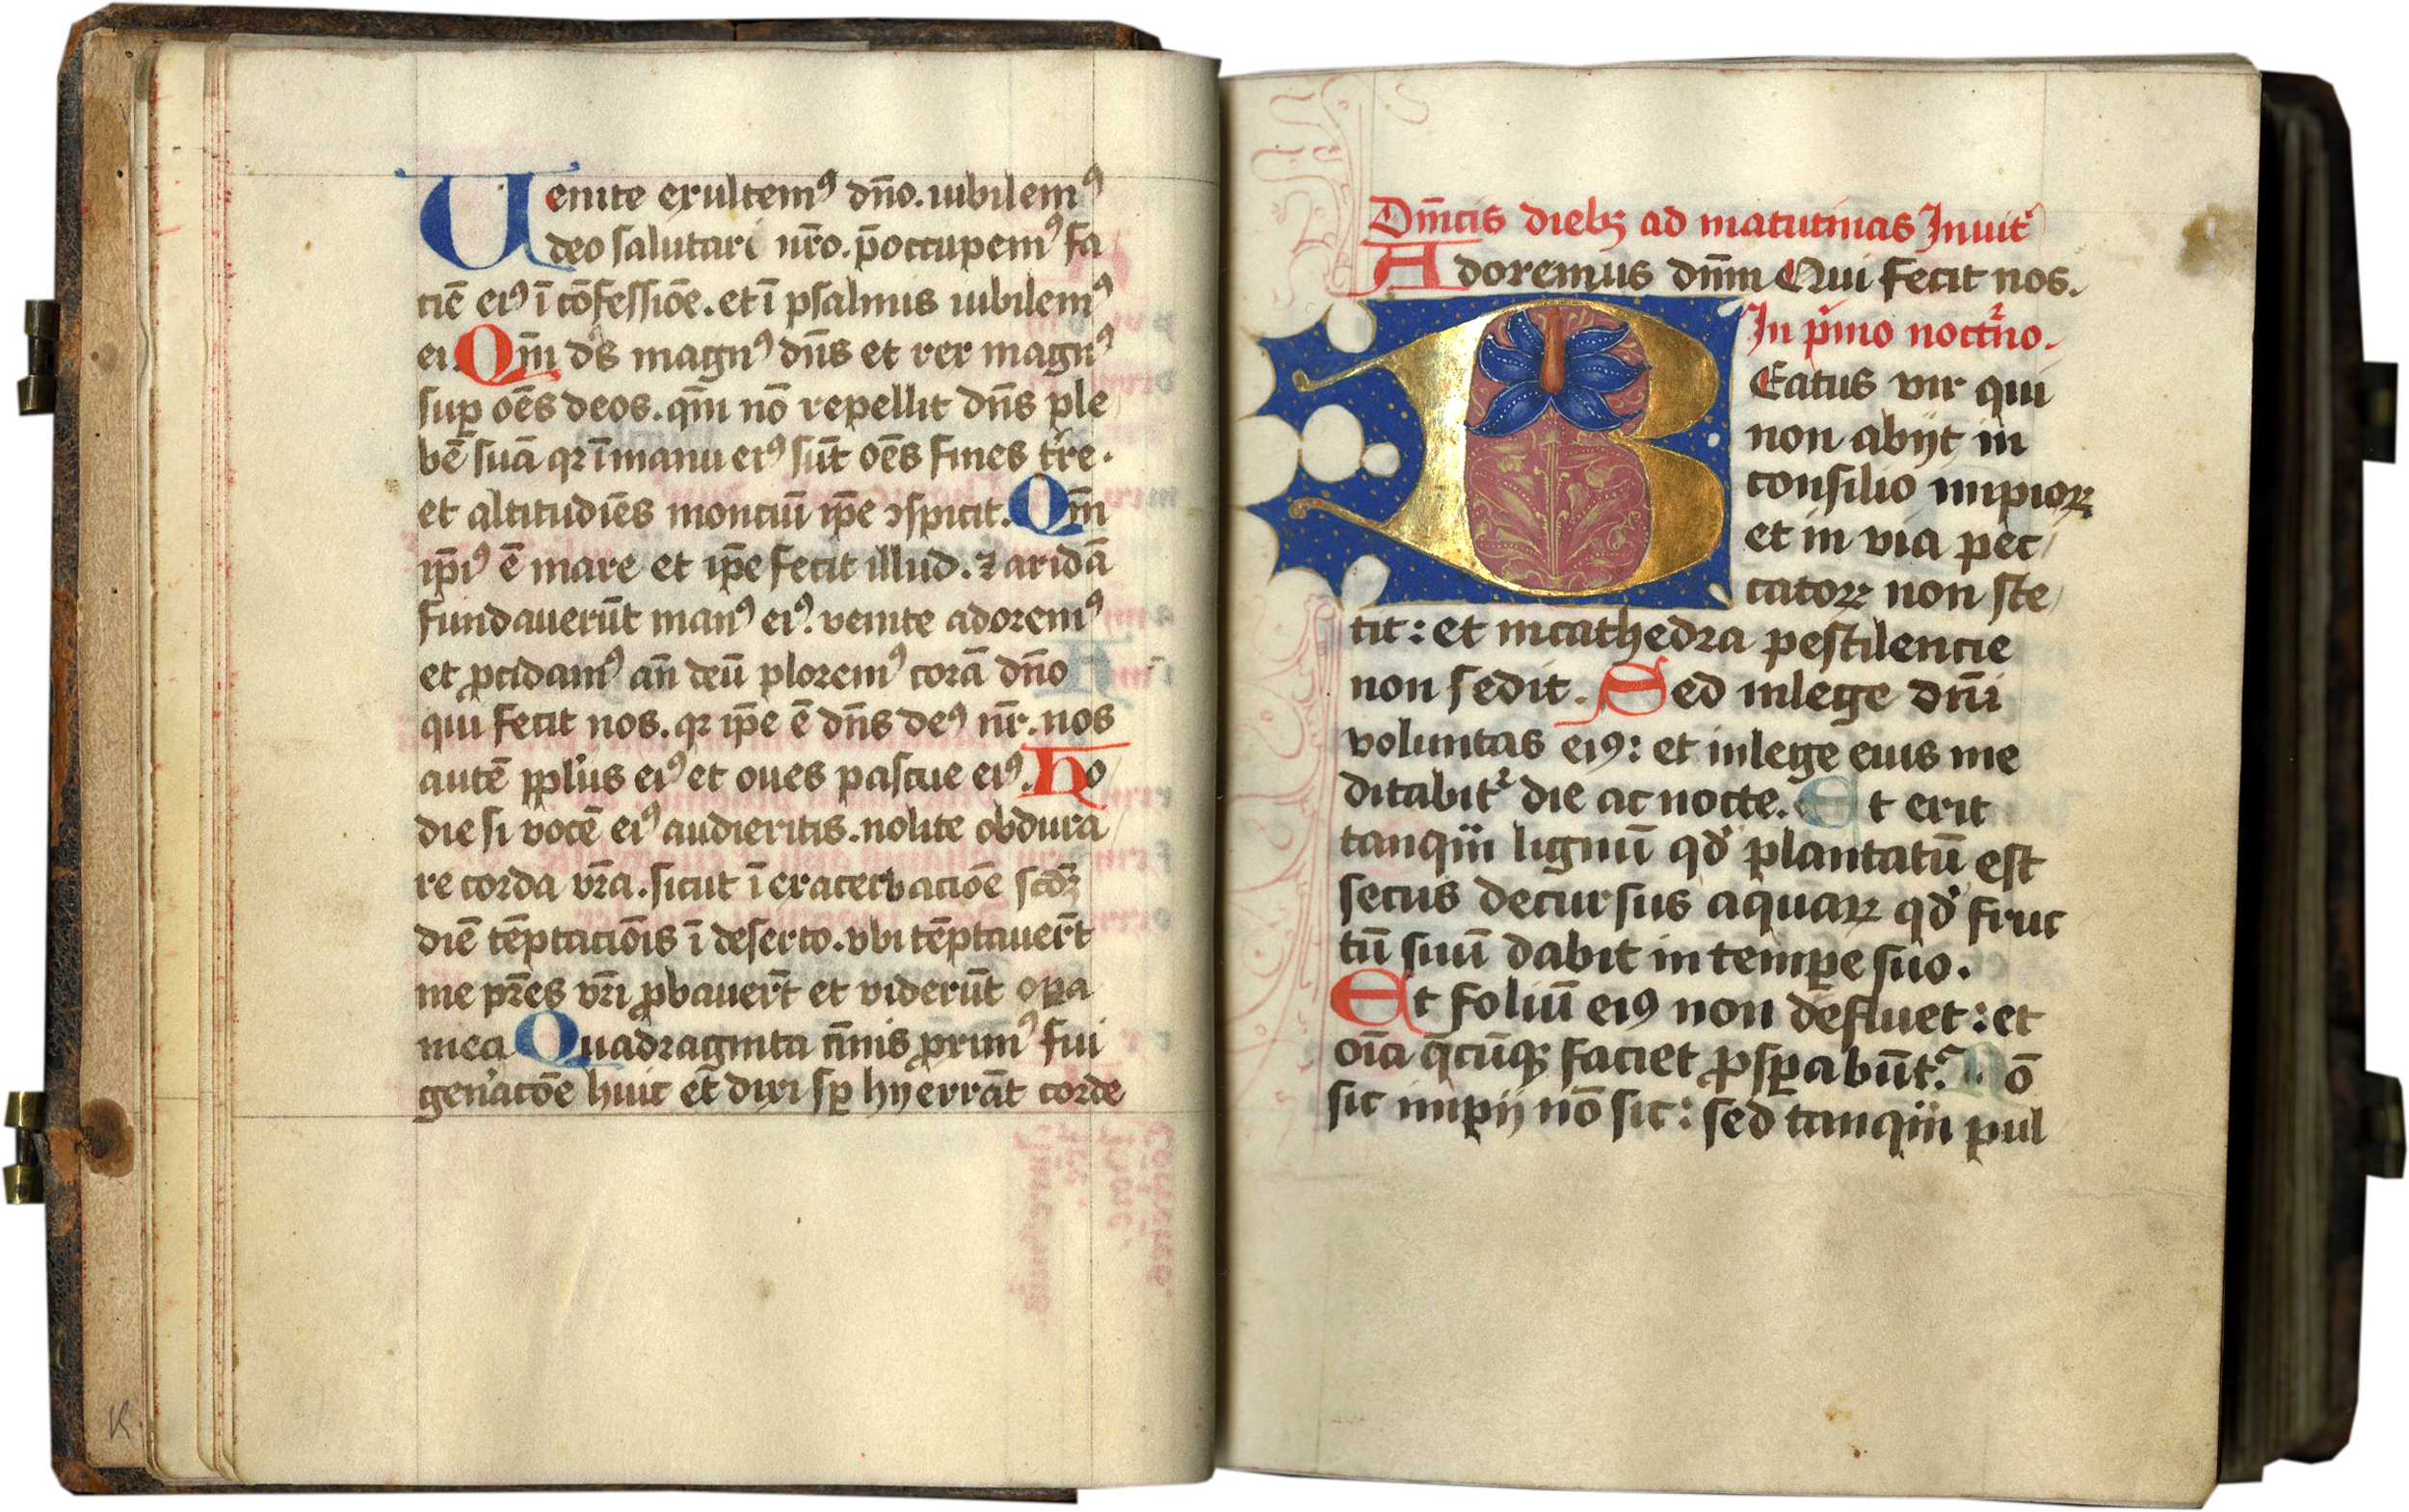 Uenite exultemꝰ dn̄o. iubilemꝰ
deo salutari nr̄o. p̄occupemꝰ fa
ciē eiꝰ ī cōfessiōe. et ī psalmis iubilemꝰ
ei. Qm̄ ds̄ magnꝰ dn̄s et rex magnꝰ
suꝑ oēs deos. qm̄ nō repellit dn̄s ple
bē suā qꝛ ī manu eiꝰ sūt oēs fines t̄re.
et altitudīes monciū ip̄e ↄspicit. Qm̄
ip̄iꝰ ē mare et ip̄e fecit illud. ⁊ aridā
fundauerūt manꝰ eiꝰ. venite adoremꝰ
et ꝓcidamꝰ an̄ deū ploremꝰ corā dn̄o
qui fecit nos. qꝛ ip̄e ē dn̄s deꝰ nr̄. nos
autē ppl̓us eiꝰ et oues pascue eiꝰ. Ho
die si vocē eiꝰ audieritis. nolite obdura
re corda vr̄a. sicut ī exacerbaciōe scd̄ꝫ
diē tēptaciōis ī deserto. vbi tēptauer̄t
me pr̄es vr̄i ꝓbauer̄t et viderūt oꝑa
mea Quadraginta ānis ꝓximꝰ fui
gen̓acōe huic et dixi sꝑ hij errāt corde
Dn̄icis diebꝫ ad matutinas Inuit̓
Adoremus dn̄m Qui fecit nos.
In p̓mo noct̓no.
BEatus vir qui
non abijt in
consilio impioꝝ
et in via pec
catoꝝ non ste
tit: et in cathedra pestilencie
non sedit. Sed in lege dn̄i
voluntas eiꝰ: et in lege eius me
ditabit̓ die ac nocte. Et erit
tanqm̄ lignū qd̓ plantatū est
secus decursus aquaꝝ qd̓ fruc
tū suū dabit in tempe suo.
Et foliū eiꝰ non defluet: et
oīa q̄cūqꝫ faciet ꝓsꝑabūt̓. Nō
sic impij nō sic: sed tanqm̄ pul
K